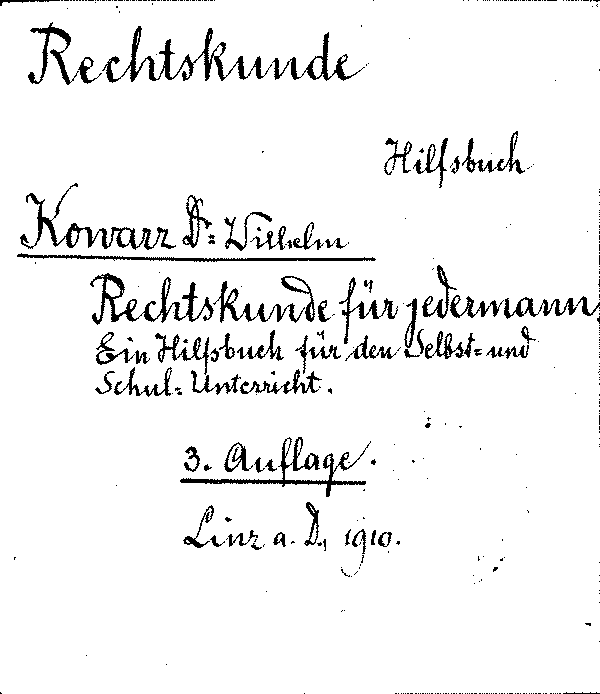 Rechtskunde
Hilfsbuch
Kowarz Dr= Wilhelm
Rechtskunde für jedermann,
Ein Hilfsbuch für den Selbst= und
Schul=Unterricht.
3. Auflage.
Linz a. D., 1910.